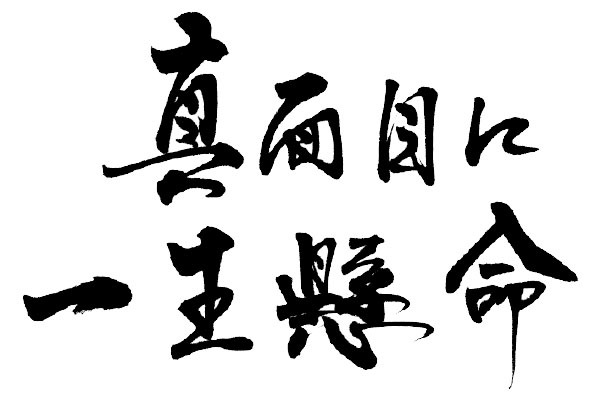 真面目に
一生懸命